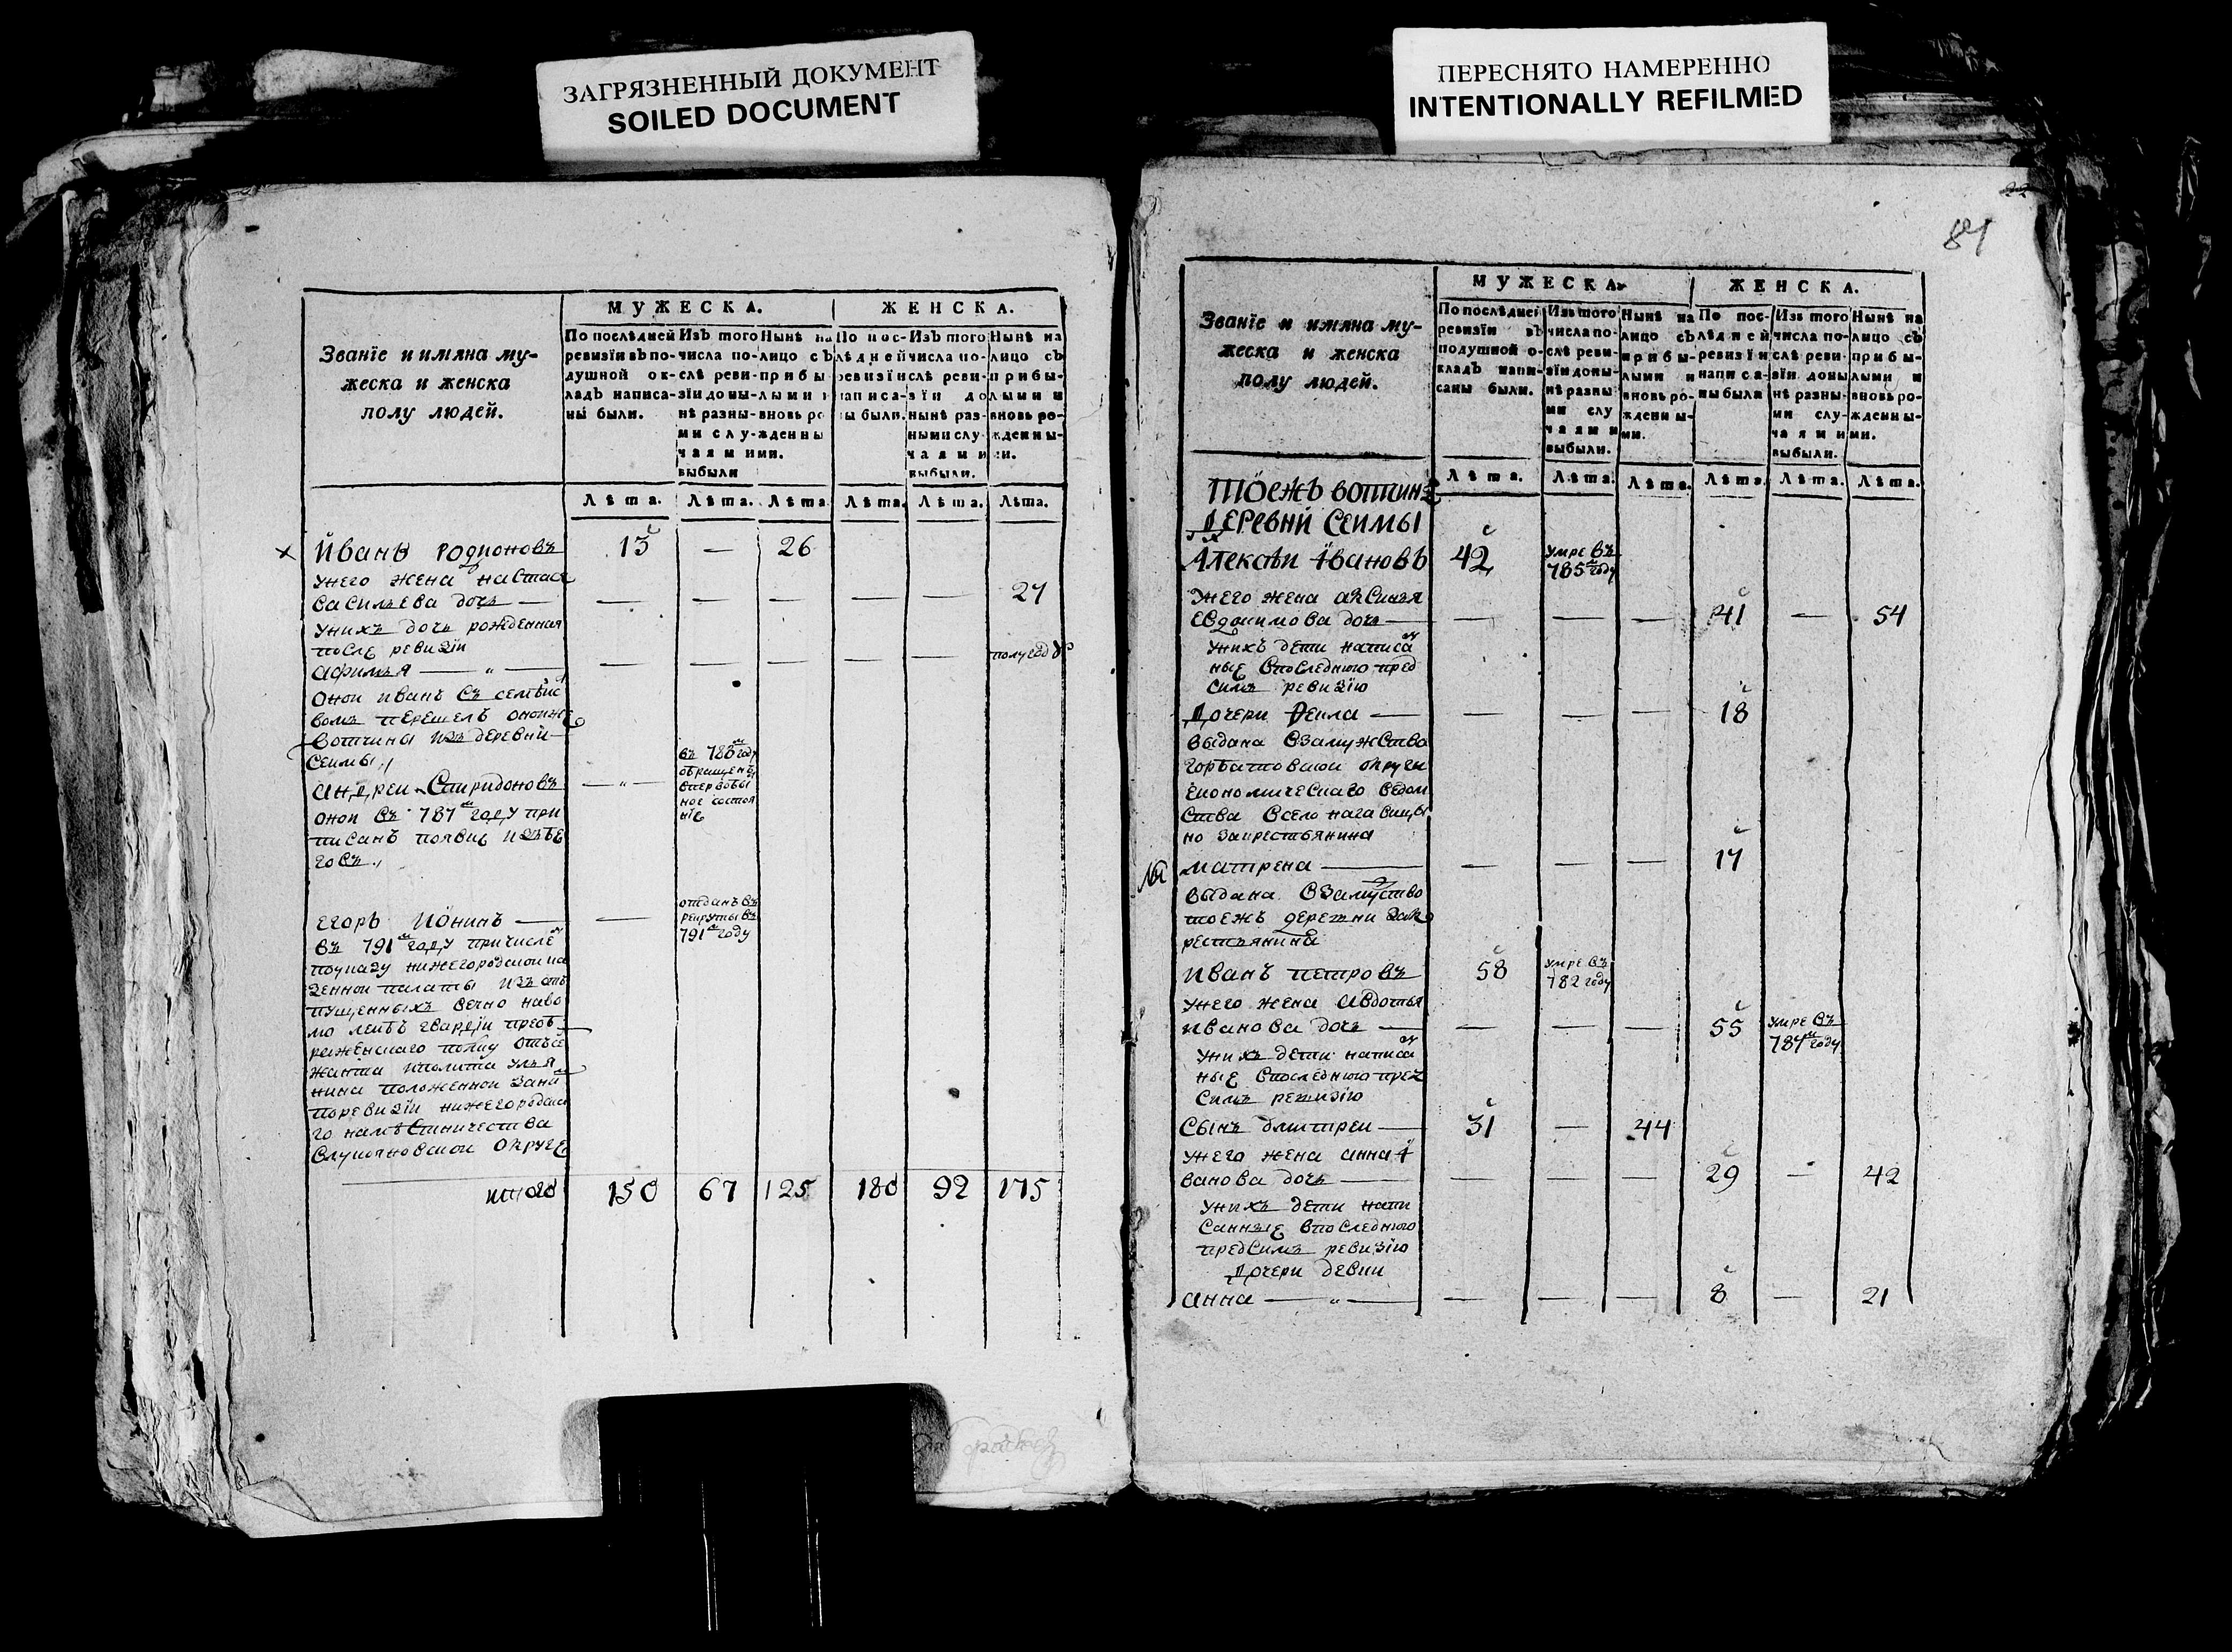 ЗАГРЯЗНЕННЫЙ ДОКУМЕНТ
SOILED DOCUMENT
ПЕРЕСНЯТО НАМЕРЕННО
INTENTIONALLY REFILMED
МУЖЕСКА. ЖЕНСКА.
Званїе и имяна му-
жеска и женска
полу людей.
По послѣдней ревизїи въ по-
душной ок-
ладъ написа-
ны были.
Изъ того
числа по-
слѣ реви-
зїи доны-
нѣ разны-
ми слу-
чаями
выбыли
Нынѣ на
лицо съ
прибы
лыми и
вновь ро
жденны
ми.
По пос-
лѣдней
ревизїи
написа-
ны были.
Изъ того
числа по-
слѣ реви-
зїи до
нынѣ раз-
ными слу-
чаями
выбыли.
Нынѣ на
лицо съ
прибы-
лыми и
вновь ро-
жденны-
ми.
Лѣта. Лѣта. Лѣта Лѣта. Лѣта. Лѣта.
Иванъ родионовъ 13 — 26
унего жена настася
васильева дочь — — — — — — 27
унихъ дочь рожденная
после ревизїи
афимья — — — — — — полугоду
оной иванъ съ семейс
вомъ перешелъ оноиже
вотчины изъ деревни
Сеимы
андреи Спиридоновъ — въ 786м году
обращенъ
вперьвобы
ное состоя
нїе
онои въ 787м году при
писанъ появке избе
говъ
егоръ ионинъ — — отданъ въ
рекруты въ
791м году
въ 791м году причисле
поуказу нижегородскои ка
зеннои палаты изъ отъ
пущенныхъ вечно наво
лю леибъ гвардїи преоб
раженскаго полку отъсе
жанта иполита улья
нина положеннои зани
поревизїи нижегородска
го наместничества
влукояновскои округе
итого 150 67 125 180 92 175
84
МУЖЕСКА. ЖЕНСКА.
Званїе и имяна му-
жеска и женска
полу людей.
По послѣдней
ревизїи въ
подушной о-
кладъ напи-
саны были.
Изъ того
числа по-
слѣ реви-
зїи доны-
нѣ разны-
ми слу
чаями
выбыли.
Нынѣ на
лицо съ
прибы-
лыми и
вновь ро-
жденны-
ми.
По пос-
лѣдней
ревизїи
написа-
ны были
Изъ того
числа по-
слѣ реви-
зїи доны
нѣ разны-
ми слу-
чаями
выбыли.
Нынѣ на
лицо съ
прибы-
лыми и
вновь ро-
жденны-
ми.
Лѣта. Лѣта. Лѣта. Лѣта. Лѣта. Лѣта.
тоежъ вотчины
деревни Сеимы
Алексеи Ивановъ 42 умре въ
785м году
унего жена аксинья
евдокимова дочь — — — — 41 — 54
унихъ дети написа
ные впоследнюю пред
симъ ревизїю
дочери Фекла — — — — 18
выдана взамужство
горбатовскои округи
економическаго ведом
ства всело
но закрестьянина
матрена — — — — 17
выдана взамуство
тоежъ деревни зак
рестьянина
иванъ петровъ 58 умре въ
782 году
унего жена авдотья
иванова дочь — — — — 55 умре въ
787м году
унихъ дети написа
ные впоследнюю пред
симъ ревизїю
сынъ дмитреи — 31 — 44
унего жена анна и
ванова дочь — — — — 29 — 42
унихъ дети напи
санные впоследнюю
предсимъ ревизїю
дочери девки
анна — — — — 8 — 21